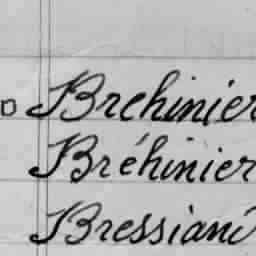 Brehinier
Bréhinier
Bressiani